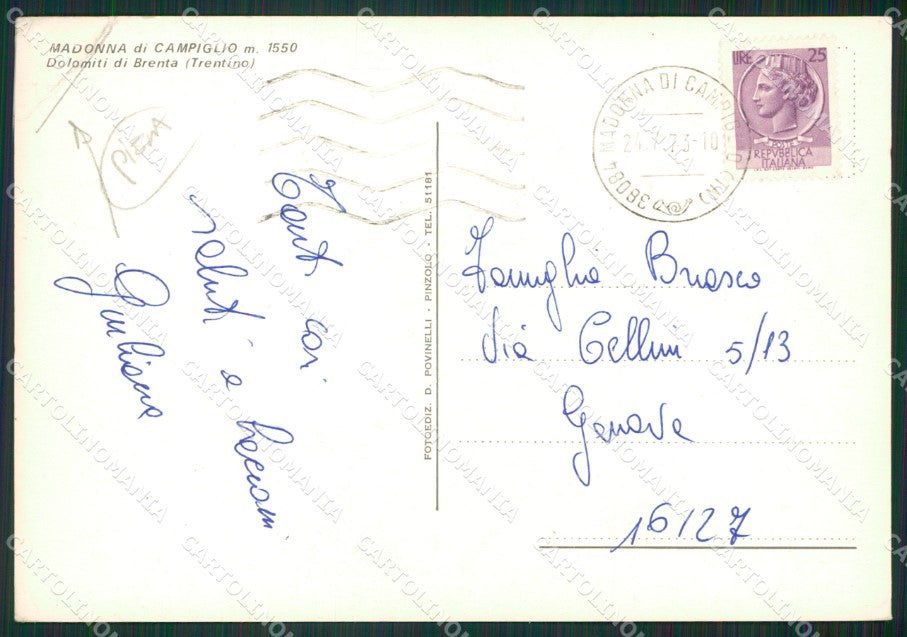 MADONNA di CAMPIGLIO m. 1550
Dolomiti di Brenta (Trentino)
LIRE 25
POSTE
REPVBBLICA
ITALIANA
MADONNA DI CAMPIGLIO (TN)
38084
Tanti cari
saluti e baccioni
Giuliana
FOTOEDIZ. D. POVINELLI - PINZOLO - TEL. 51181
Famiglia Briasco
Via Cellini 5/13
Genova
16127
CARTOLINOMANIA